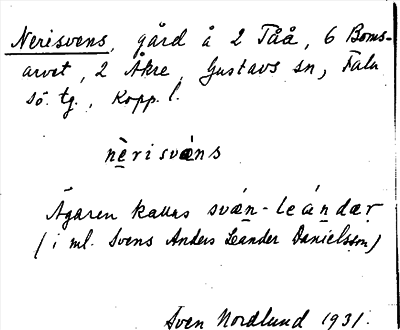 Nerisvens, gård å 2 Tåå, 6 Boms-
arvet, 2 Åkre, Gustavs sn, Falu
sö. tg., Kopp. l.
nè̱risvàns
Ägaren kallas svæ̱n-leánḏær
(i ml. Svens Anders Leander Danielsson)
Sven Nordlund 1931.